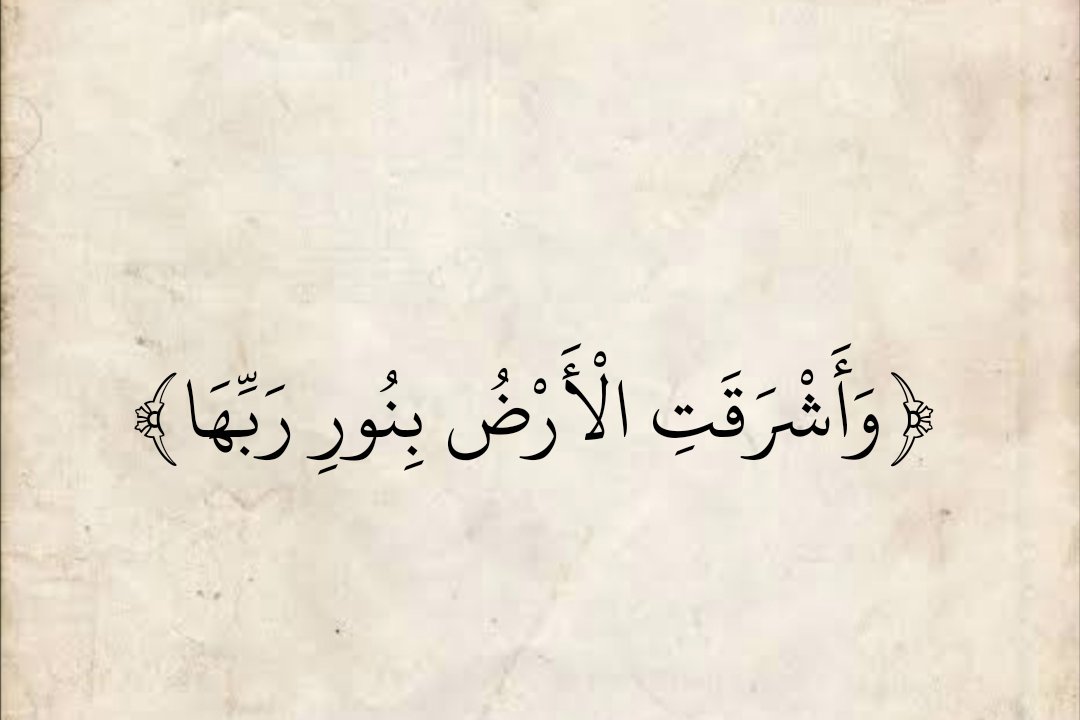 ﴿وَأَشْرَقَتِ الْأَرْضُ بِنُورِ رَبِّهَا﴾